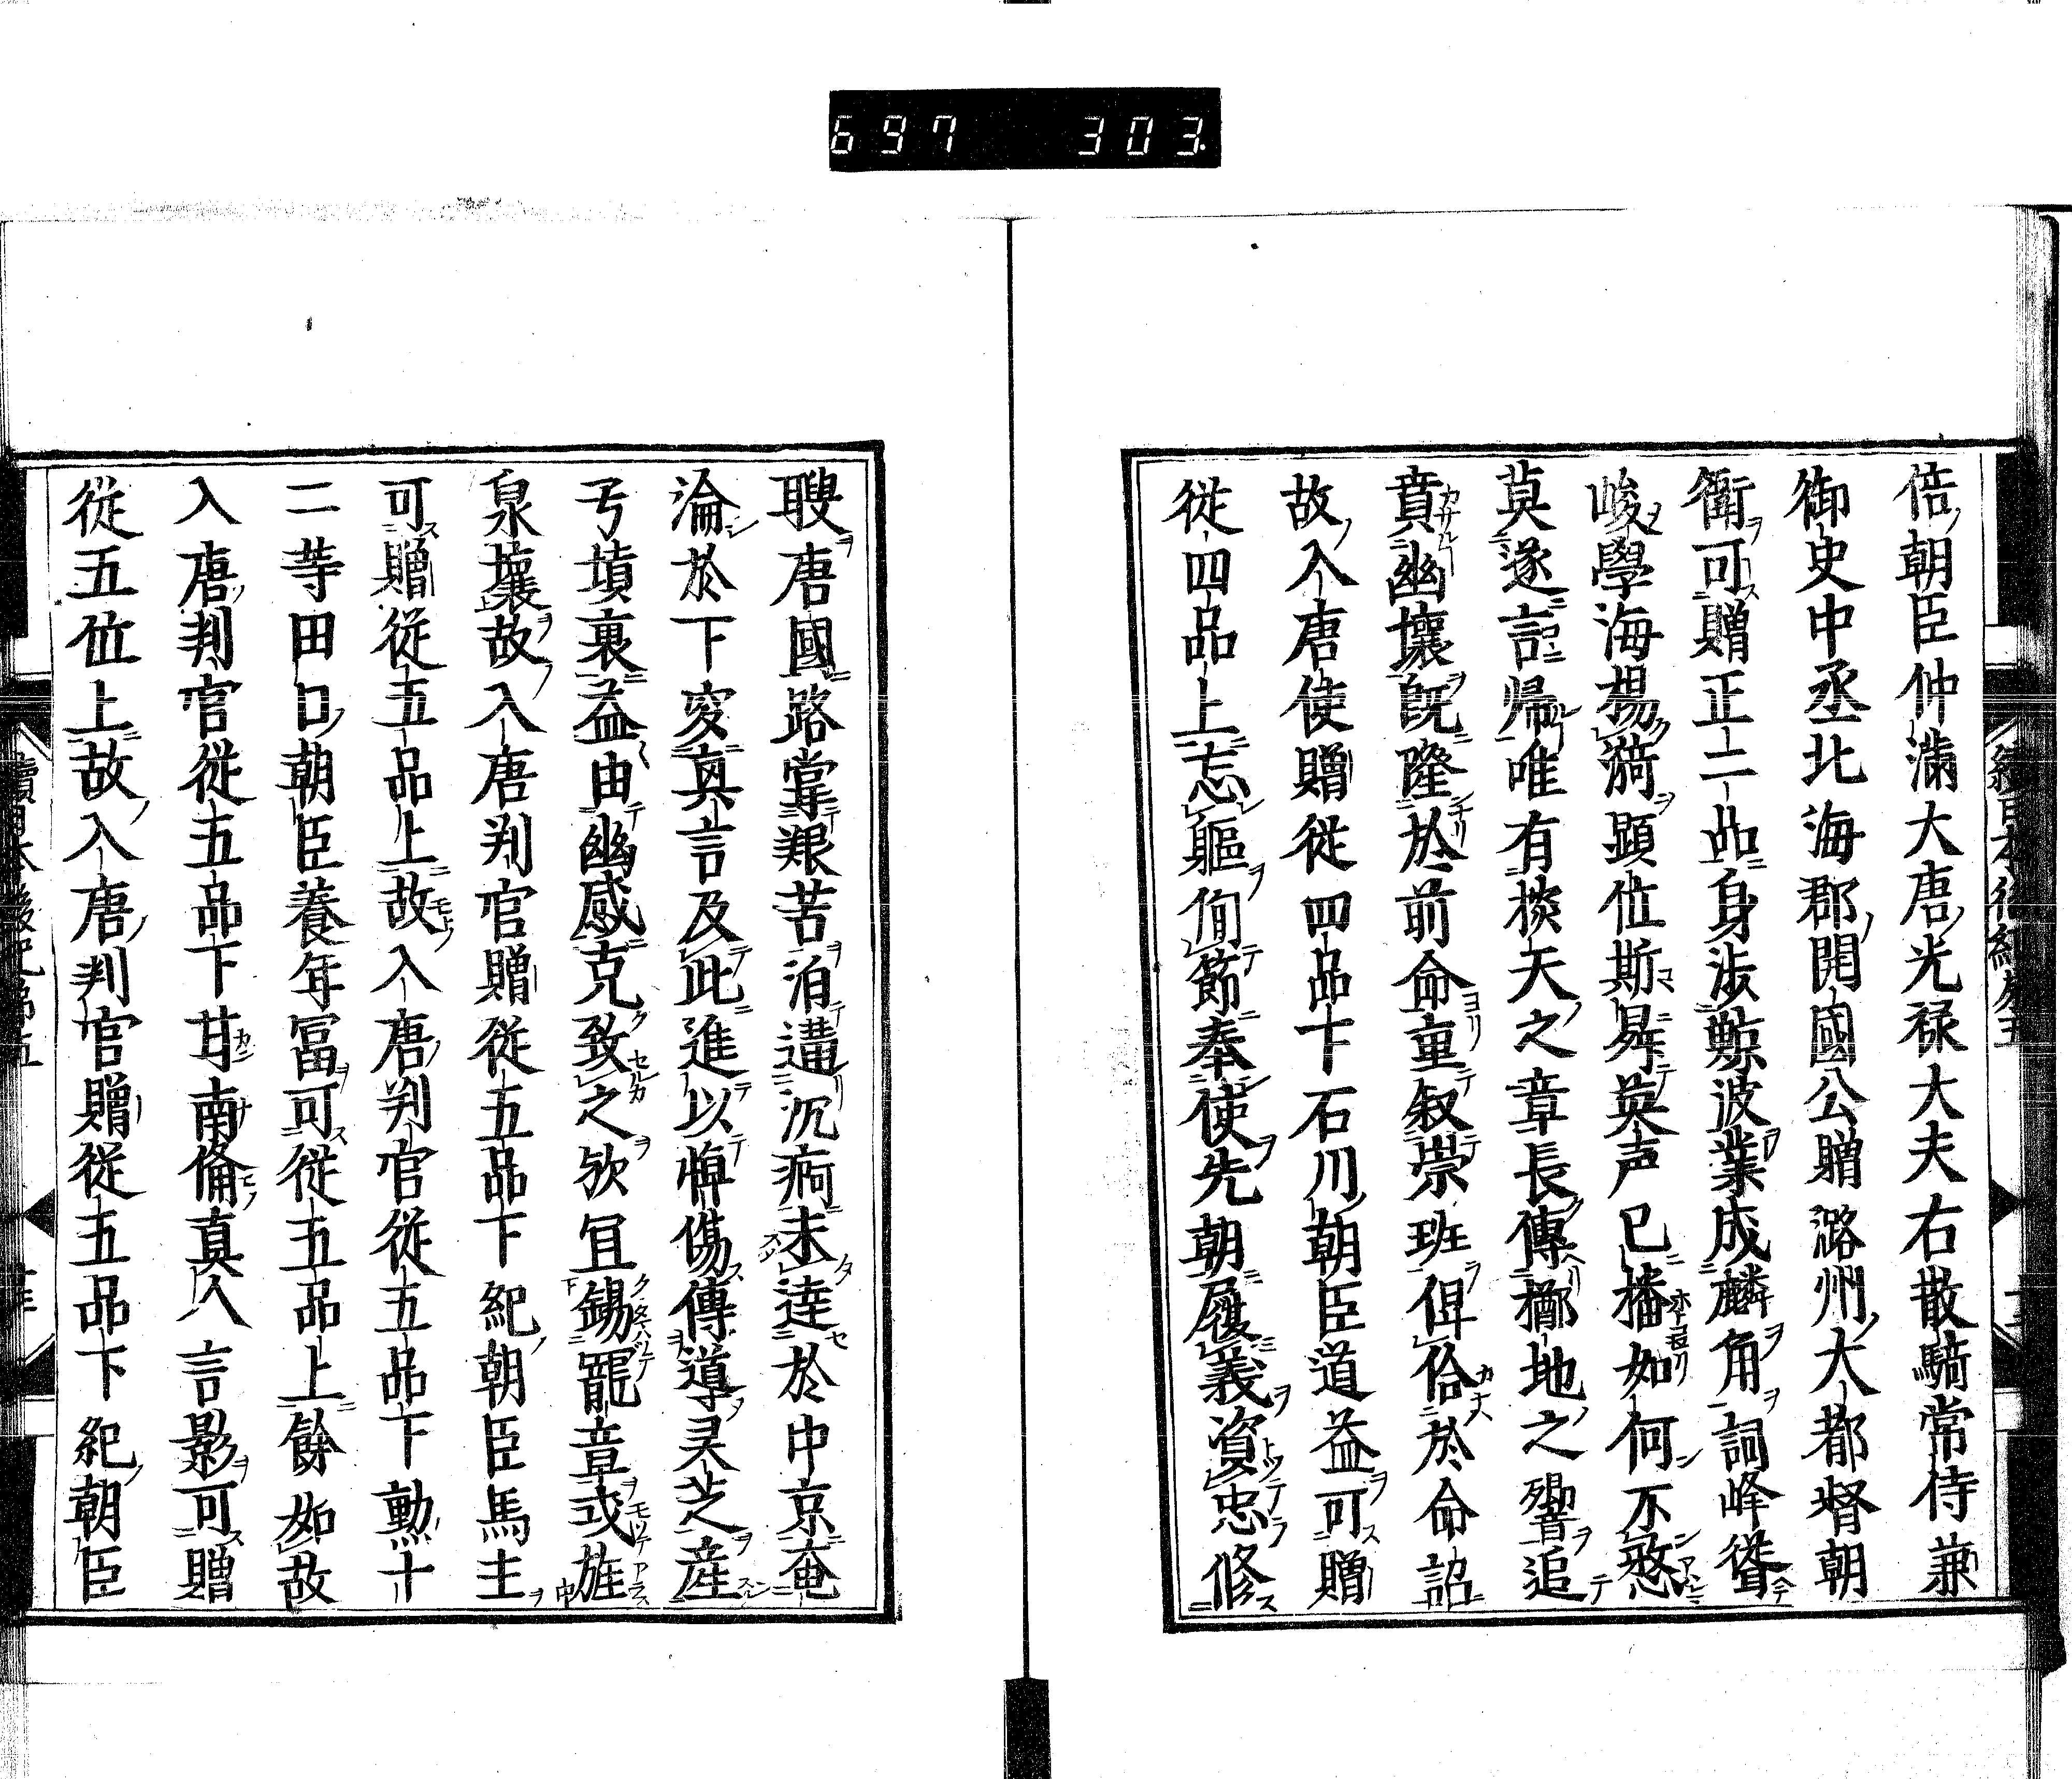 697 303
倍朝臣仲滿大唐光禄大夫右散騎常侍兼
御史中丞北海郡開國公贈潞州大都督朝
衡可贈正二品身渉鯨波業成麟角詞峰聳
峻學海揚漪顕位斯昇英声已播如何不憖
莫遂言帰唯有掞天之章長傳擲地之響追
賁幽壤既隆於前命重叙崇班俾俗於命詔
故入唐使贈從四品下石川朝臣道益可贈
從四品上忘軀侚節奉使先朝履義資忠修
聘唐國路掌艱苦泊遘沉痾未達於中京奄
淪於下㝎真言及此進以悼傷傳導灵芝産
于墳裏益由幽感克致之欤且錫寵章或旌
泉壤故入唐判官贈從五品下紀朝臣馬主
可贈從五品上故入唐判官從五品下勳十
二等田口朝臣養年冨可從五品上餘如故
入唐判官從五品下甘南俻真人言影可贈
從五位上故入唐判官贈從五品下紀朝臣
續日本後紀卷五